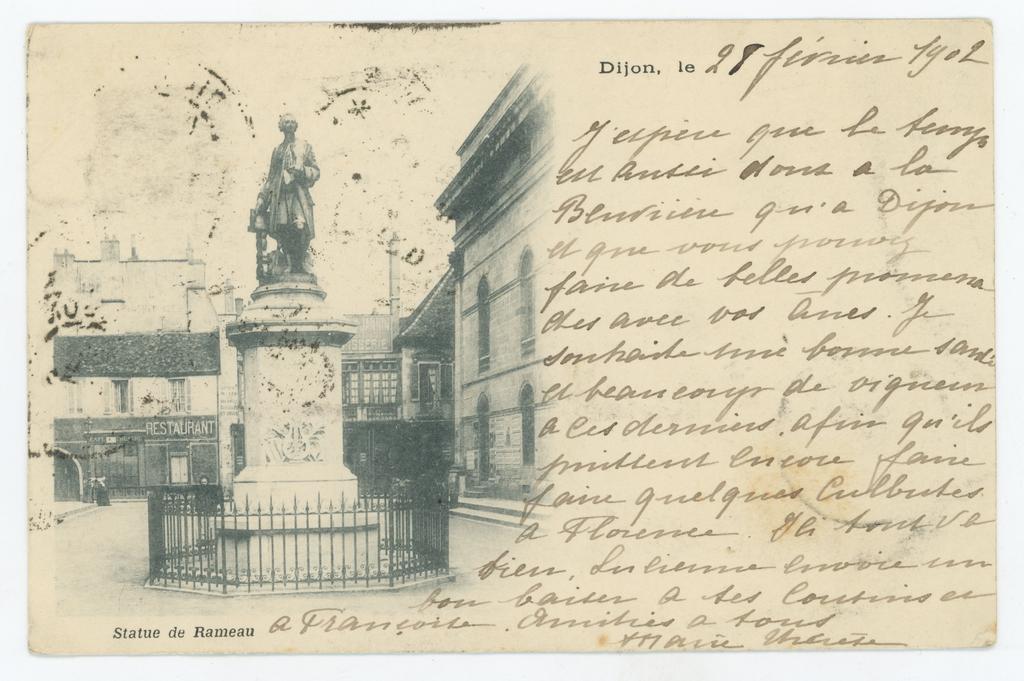 Dijon, le 28 février 1902
J'espère que le temps
est aussi doux a la
qu'a Dijon
et que vous pouvez
faire de belles promena
des avec vos ânes. Je
souhaite une bonne santé
et beaucoup de vigueur
a ces derniers, afin qu'ils
puissent encore faire
faire quelques culbutes
a Florence. Ici tout va
bien, Lucienne envoie un
bon baiser a ses cousins et
a Françoise. Amitiés a tous
Marie Thérèse
RESTAURANT
Statue de Rameau